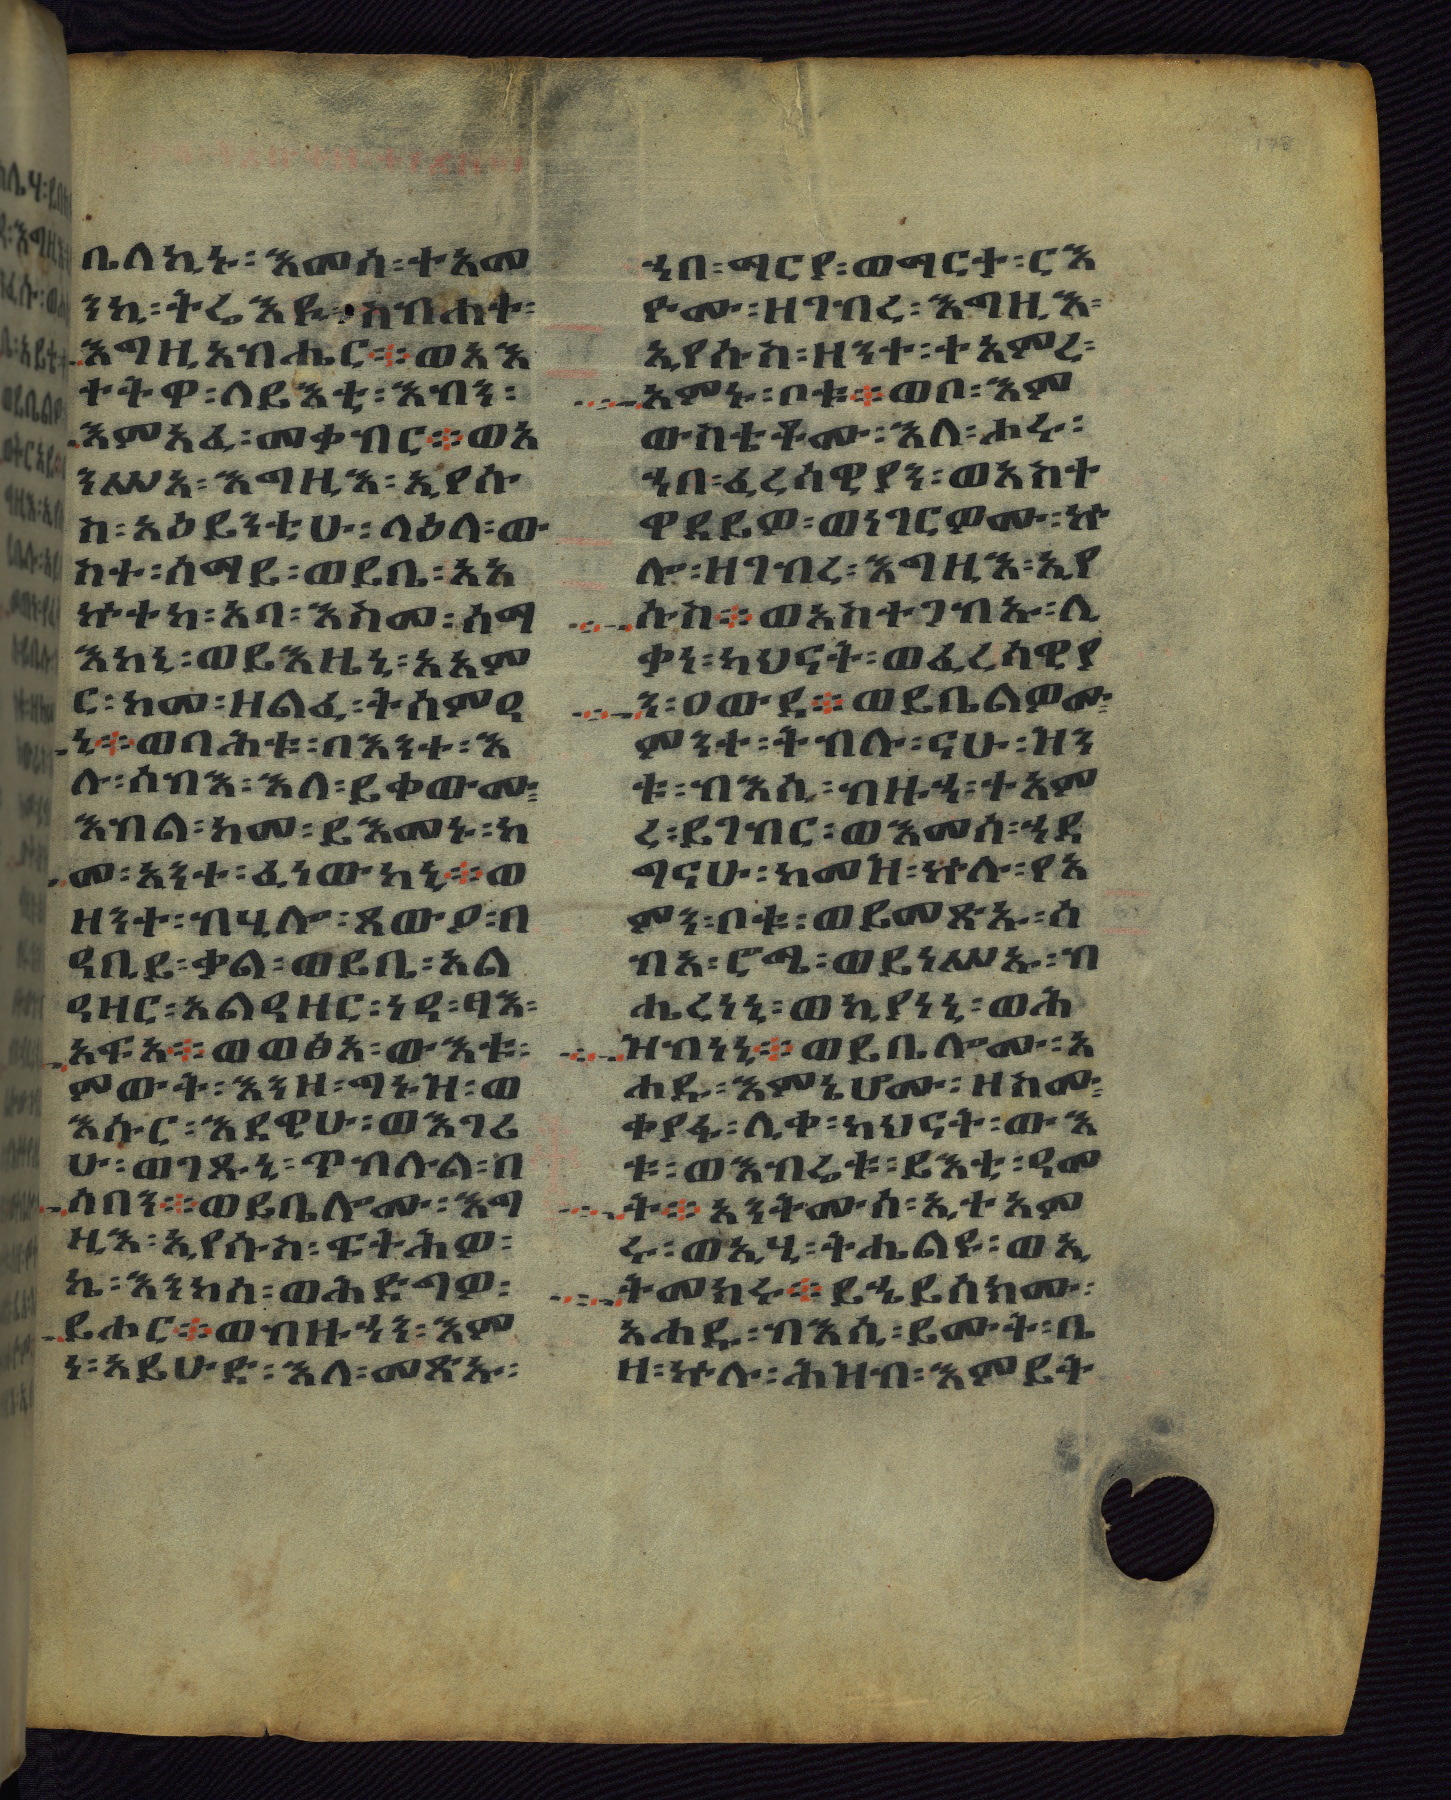 ቤለኪኑ፡እመሰ፡ተአመ
ንኪ፡ትሬእዪ፡ስብሐተ፡
እግዚአብሔር፨ወአእ
ተትዋ፡ለይእቲ፡እብን፡
እምአፈ፡መቃብር፨ወአ
ንሥአ፡እግዚእ፡ኢየሱ
ስ፡አዕይንቲሁ፡ላዕለ፡ው
ስተ፡ሰማይ፡ወይቤ፡አአ
ኵተከ፡አባ፡እስመ፡ሰማ
እከኒ፡ወይእዜኒ፡አአም
ር፡ከመ፡ዘልፈ፡ትሰምዓ
ኒ፨ወባሕቱ፡በእንተ፡እ
ሉ፡ሰብእ፡እለ፡ይቀውሙ፡
እብል፡ከመ፡ይእመኑ፡ከ
መ፡አንተ፡ፈነውከኒ፨ወ
ዘንተ፡ብሂሎ፡ጸውዐ፡በ
ዓቢይ፡ቃል፡ወይቤ፡አል
ዓዛር፡አልዓዛር፡ነዓ፡ፃእ፡
አፍአ፨ወወፅአ፡ውእቱ፡
ምውት፡እንዘ፡ግኑዝ፡ወ
እሱር፡እደዊሁ፡ወእገሪ
ሁ፡ወገጹኒ፡ጥብሉል፡በ
ሰበን፨ወይቤሎሙ፡እግ
ዚእ፡ኢየሱስ፡ፍትሕዎ፡
ኬ፡እንከሰ፡ወሕድግዎ፡
ይሑር፨ወብዙኃን፡እም
ነ፡አይሁድ፡እለ፡መጽኡ፡
ኀበ፡ማርያ፡ወማርታ፡ርእ
ዮሙ፡ዘገብረ፡እግዚእ፡
ኢየሱስ፡ዘንተ፡ተአምረ፡
አምኑ፡ቦቱ፨ወቦ፡እም
ውስቴቶሙ፡እለ፡ሐሩ፡
ኀበ፡ፈሪሳዊያን፡ወአስተ
ዋደይዎ፡ወነገርዎሙ፡ኵ
ሎ፡ዘገብረ፡እግዚእ፡ኢየ
ሱስ፨ወአስተጋብኡ፡ሊ
ቃነ፡ካህናት፡ወፈሪሳዊያ
ን፡ዐውደ፨ወይቤልዎሙ፡
ምንተ፡ትብሉ፡ናሁ፡ዝን
ቱ፡ብእሲ፡ብዙኀ፡ተአም
ረ፡ይገብር፡ወእመሰ፡ኀደ
ግናሁ፡ከመዝ፡ኵሉ፡የአ
ምን፡ቦቱ፡ወይመጽኡ፡ሰ
ብአ፡ሮሜ፡ወይነሥኡ፡ብ
ሔረነኒ፡ወኪያነኒ፡ወሕ
ዝብነኒ፨ወይቤሎሙ፡አ
ሐዱ፡እምኔሆሙ፡ዘስሙ፡
ቀያፋ፡ሊቀ፡ካህናት፡ውእ
ቱ፡ወእብሬቱ፡ይእቲ፡ዓመ
ት፨አንትሙሰ፡ኢተአም
ሩ፡ወኢሂ፡ትሔልዩ፡ወኢ
ትመክሩ፨ይኄይሰክሙ፡
አሐዱ፡ብእሲ፡ይሙት፡ቤ
ዛ፡ኵሉ፡ሕዝብ፡እምይት